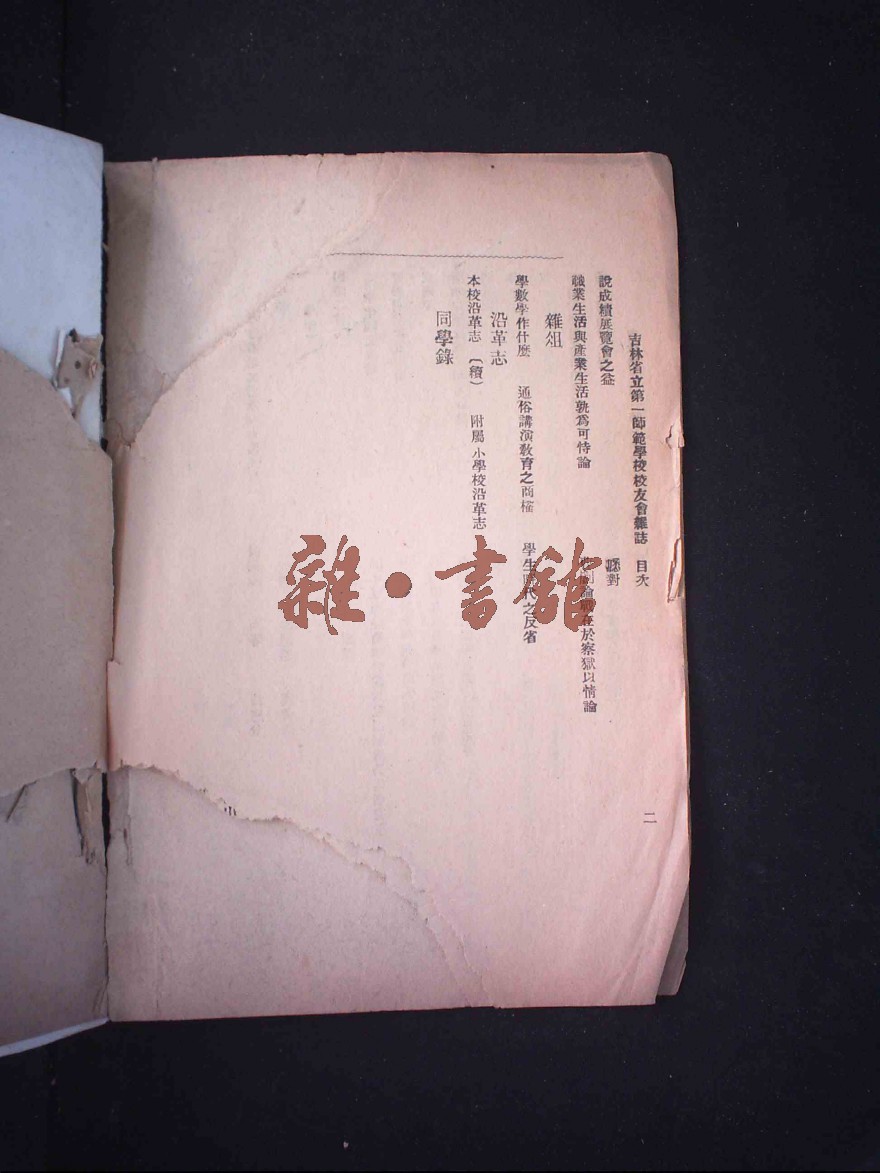 吉林省立第一師範學校校友會雜誌 目次
二
說成績展覽會之益
對
職業生活與產業生活孰爲可恃論
論 在於察獄以情論
雜俎
學數學作什麼 通俗講演教育之商榷 學生時代之反省
沿革志
本校沿革志 (續) 附屬小學校沿革志
同學錄
雜·書館